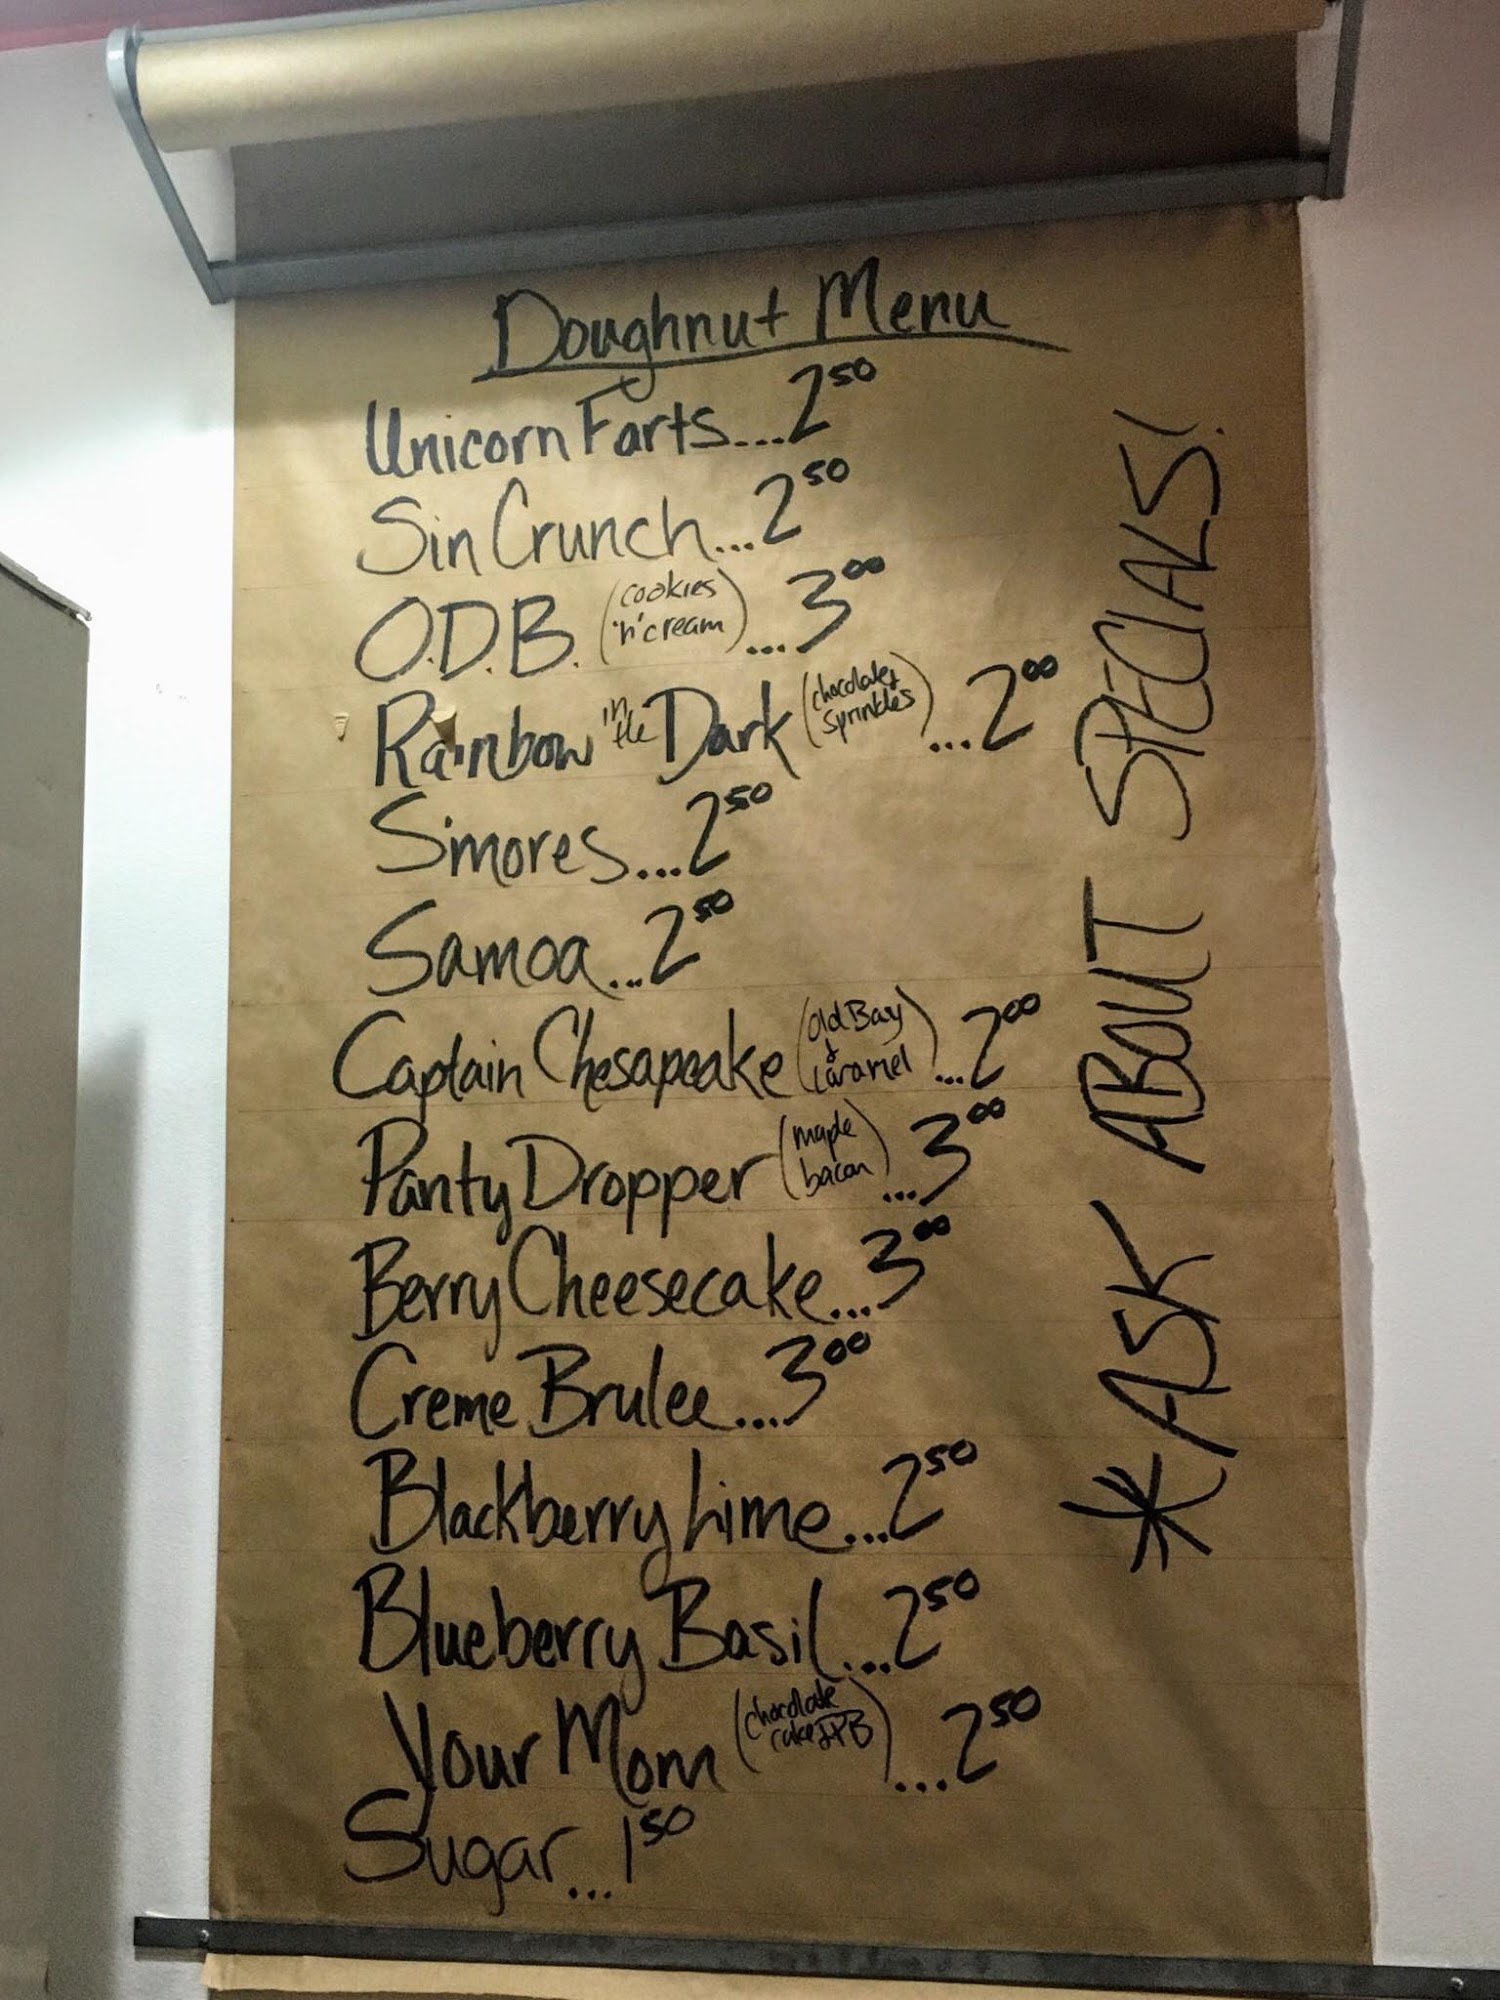 Doughnut Menu
Unicorn Farts...2 50
Sin Crunch...2 50
O.D.B. (cookies 'n' cream) ...3 00
Rainbow in the Dark (chocolate & sprinkles) ...2 00
S'mores...2 50
Samoa...2 50
Captain Chesapeake (old Bay & caramel) ...2 00
Panty Dropper (maple bacon) ...3 00
Berry Cheesecake...3 00
Creme Brulee...3 00
Blackberry Lime...2 50
Blueberry Basil...2 50
Your Mom (chocolate cake & PB) ...2 50
Sugar...1 50
*ASK ABOUT SPECIALS!